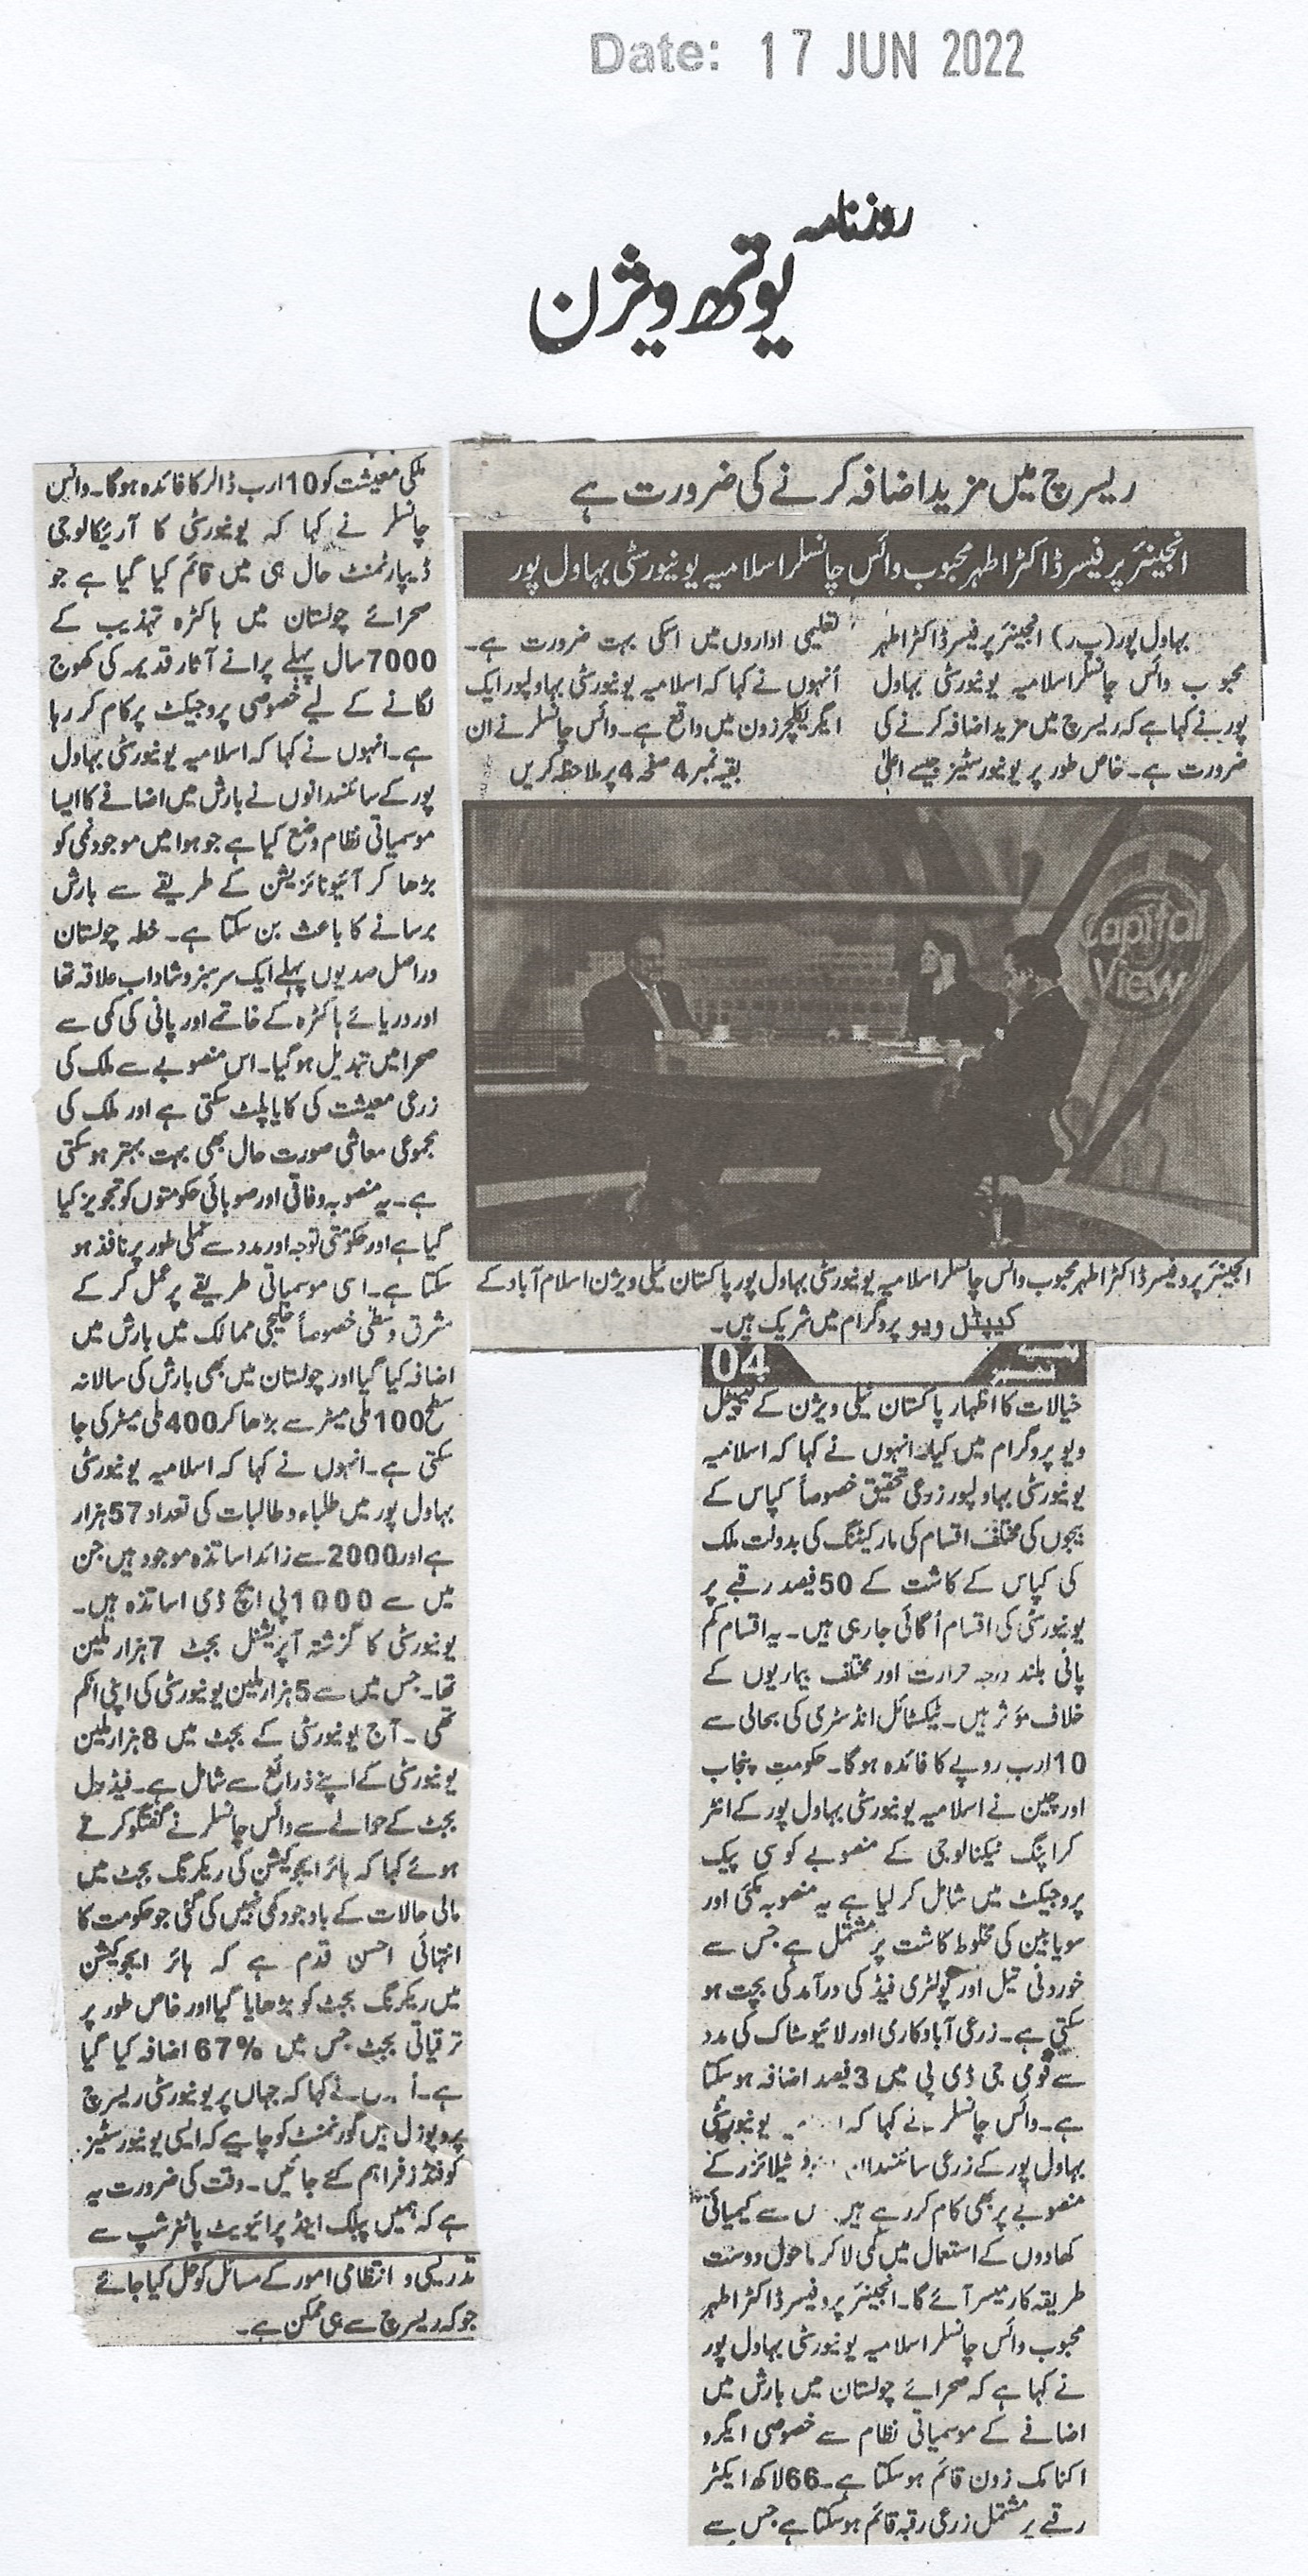 Date: 17 JUN 2022
روزنامہ
یوتھ ویژن
ریسرچ میں مزید اضافہ کرنے کی ضرورت ہے
انجینئر پرفیسر ڈاکٹر اطہر محبوب وائس چانسلر اسلامیہ یونیورسٹی بہاول پور
بہاول پور(پ ر) انجینئر پرفیسر ڈاکٹر اطہر
محبوب وائس چانسلر اسلامیہ یونیورسٹی بہاول
پور نے کہا ہے کہ ریسرچ میں مزید اضافہ کرنے کی
ضرورت ہے۔ خاص طور پر یونیورسٹیز جیسے اعلیٰ
تعلیمی اداروں میں اسکی بہت ضرورت ہے۔
اُنہوں نے کہا کہ اسلامیہ یونیورسٹی بہاولپور ایک
ایگریکلچر زون میں واقع ہے۔ وائس چانسلر نے ان
بقیہ نمبر 4 صفحہ 4 پر ملاحظہ کریں
Capital
View
انجینئر پروفیسر ڈاکٹر اطہر محبوب وائس چانسلر اسلامیہ یونیورسٹی بہاول پور پاکستان ٹیلی ویژن اسلام آباد کے
کیپٹل ویو پروگرام میں شریک ہیں۔
04
خیالات کا اظہار پاکستان ٹیلی ویژن کے کیپٹل
ویو پروگرام میں کیا۔ انہوں نے کہا کہ اسلامیہ
یونیورسٹی بہاولپور زرعی تحقیق خصوصاً کپاس کے
بیجوں کی مختلف اقسام کی مارکیٹنگ کی بدولت ملک
کی کپاس کے کاشت کے 50 فیصد رقبے پر
یونیورسٹی کی اقسام اُگائی جا رہی ہیں۔ یہ اقسام کم
پانی بلند درجہ حرارت اور مختلف بیماریوں کے
خلاف مؤثر ہیں۔ ٹیکسٹائل انڈسٹری کی بحالی سے
10 ارب روپے کا فائدہ ہوگا۔ حکومتِ پنجاب
اور چین نے اسلامیہ یونیورسٹی بہاول پور کے انٹر
کراپنگ ٹیکنالوجی کے منصوبے کو سی پیک
پروجیکٹ میں شامل کر لیا ہے یہ منصوبہ مکئی اور
سویابین کی مخلوط کاشت پر مشتمل ہے جس سے
خوردنی تیل اور پولٹری فیڈ کی درآمد کی بچت ہو
سکتی ہے۔ زرعی آبادکاری اور لائیوسٹاک کی مدد
سے قومی جی ڈی پی میں 3 فیصد اضافہ ہو سکتا
ہے۔ وائس چانسلر نے کہا کہ یونیورسٹی
بہاول پور کے زرعی سائنسدان فرٹیلائزر کے
منصوبے پر بھی کام کر رہے ہیں سے کیمیائی
کھادوں کے استعمال میں کمی لا کر ماحول دوست
طریقہ کار میسر آئے گا۔ انجینئر پروفیسر ڈاکٹر اطہر
محبوب وائس چانسلر اسلامیہ یونیورسٹی بہاول پور
نے کہا ہے کہ صحرائے چولستان میں بارش میں
اضافے کے موسمیاتی نظام سے خصوصی ایگرو
اکنامک زون قائم ہو سکتا ہے۔ 66 لاکھ ایکٹر
رقبے پر مشتمل زرعی رقبہ قائم ہو سکتا ہے جس سے
ملکی معیشت کو 10 ارب ڈالر کا فائدہ ہوگا۔ وائس
چانسلر نے کہا کہ یونیورسٹی کا آرکیالوجی
ڈیپارٹمنٹ حال ہی میں قائم کیا گیا ہے جو
صحرائے چولستان میں ہاکڑہ تہذیب کے
7000 سال پہلے پرانے آثار قدیمہ کی کھوج
لگانے کے لیے خصوصی پروجیکٹ پر کام کر رہا
ہے۔ انہوں نے کہا کہ اسلامیہ یونیورسٹی بہاول
پور کے سائنسدانوں نے بارش میں اضافے کا ایسا
موسمیاتی نظام وضع کیا ہے جو ہوا میں موجود نمی کو
بڑھا کر آئیونائزیشن کے طریقے سے بارش
برسانے کا باعث بن سکتا ہے۔ خطہ چولستان
دراصل صدیوں پہلے ایک سرسبز و شاداب علاقہ تھا
اور دریائے ہاکڑہ کے خاتمے اور پانی کی کمی سے
صحرا میں تبدیل ہو گیا۔ اس منصوبے سے ملک کی
زرعی معیشت کی کایا پلٹ سکتی ہے اور ملک کی
مجموعی معاشی صورت حال بھی بہت بہتر ہو سکتی
ہے۔ یہ منصوبہ وفاقی اور صوبائی حکومتوں کو تجویز کیا
گیا ہے اور حکومتی توجہ اور مدد سے عملی طور پر نافذ ہو
سکتا ہے۔ اسی موسمیاتی طریقے پر عمل کر کے
مشرق وسطیٰ خصوصاً خلیجی ممالک میں بارش میں
اضافہ کیا گیا اور چولستان میں بھی بارش کی سالانہ
سطح 100 ملی میٹر سے بڑھا کر 400 ملی میٹر کی جا
سکتی ہے۔ انہوں نے کہا کہ اسلامیہ یونیورسٹی
بہاول پور میں طلباء و طالبات کی تعداد 57 ہزار
ہے اور 2000 سے زائد اساتذہ موجود ہیں جن
میں سے 1000 پی ایچ ڈی اساتذہ ہیں۔
یونیورسٹی کا گزشتہ آپریشنل بجٹ 7 ہزار ملین
تھا۔ جس میں سے 5 ہزار ملین یونیورسٹی کی اپنی انکم
تھی۔ آج یونیورسٹی کے بجٹ میں 8 ہزار ملین
یونیورسٹی کے اپنے ذرائع سے شامل ہے۔ فیڈرل
بجٹ کے حوالے سے وائس چانسلر نے گفتگو کرتے
ہوئے کہا کہ ہائر ایجوکیشن کی ریکرنگ بجٹ میں
مالی حالات کے باوجود کمی نہیں کی گئی جو حکومت کا
انتہائی احسن قدم ہے کہ ہائر ایجوکیشن
میں ریکرنگ بجٹ کو بڑھایا گیا اور خاص طور پر
ترقیاتی بجٹ جس میں 67% اضافہ کیا گیا
ہے۔ نے کہا کہ جہاں پر یونیورسٹی ریسرچ
پروپوزل ہیں گورنمنٹ کو چاہیے کہ ایسی یونیورسٹیز
کو فنڈز فراہم کئے جائیں۔ وقت کی ضرورت یہ
ہے کہ ہمیں پبلک اینڈ پرائیویٹ پارٹنرشپ سے
تدریسی و انتظامی امور کے مسائل کو حل کیا جائے
جو کہ ریسرچ سے ہی ممکن ہے۔